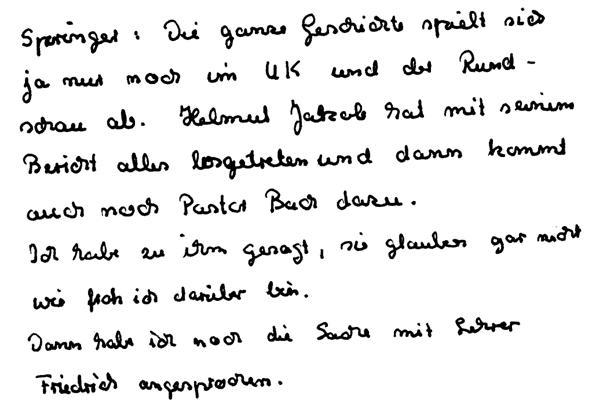 Sperringer: Die ganze Geschichte spielt sich
ja nur noch im UK und der Rund-
schau ab. Helmut Jatzek hat mit seinem
Bericht alles losgetreten und dann kommt
auch noch Pastor Bach dazu.
Ich habe zu ihm gesagt, sie glauben gar nicht
wie froh ich darüber bin.
Dann habe ich noch die Sache mit Lehrer
Friedrich angesprochen.